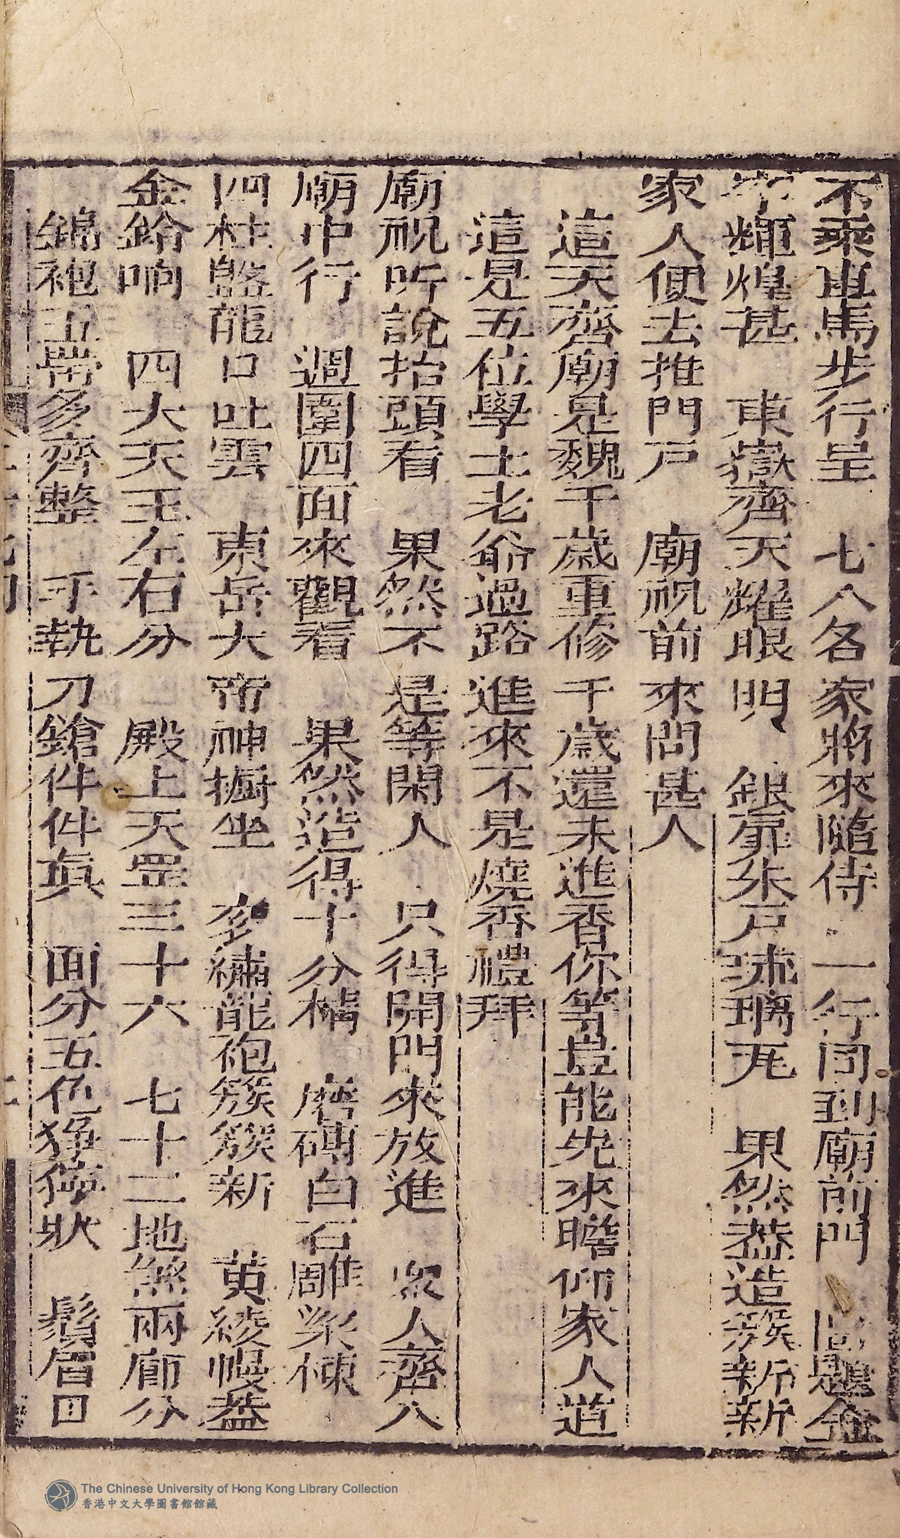 不乘車馬步行呈　七八名家將來隨侍　一行同到廟前門　題金
字輝煌甚　東嶽齊天耀眼明　銀扉朱戶琉璃瓦　果然蓋造簇新新
家人便去推門戶　廟祝前來問甚人
這天齊廟是魏千歲重修千歲還未進香你等豈能先來瞻仰家人道
這是五位學士老爺過路進來不是燒香禮拜
廟祝听說抬頭看　果然不是等閑人　只得開門來放進　眾人齊入
廟中行　週圍四面來觀看　果然造得十分精　磨磚白石雕梁棟
四柱盤龍口吐雲　東岳大帝神櫥坐　衮繡龍袍簇簇新　黃綾幔蓋
金鈴响　四大天王左右分　殿上天罡三十六　七十二地煞兩廊分
錦袍玉帶多齊整　手執刀鎗件件真　面分五色猙獰狀　鬚眉目
The Chinese University of Hong Kong Library Collection
香港中文大學圖書館館藏